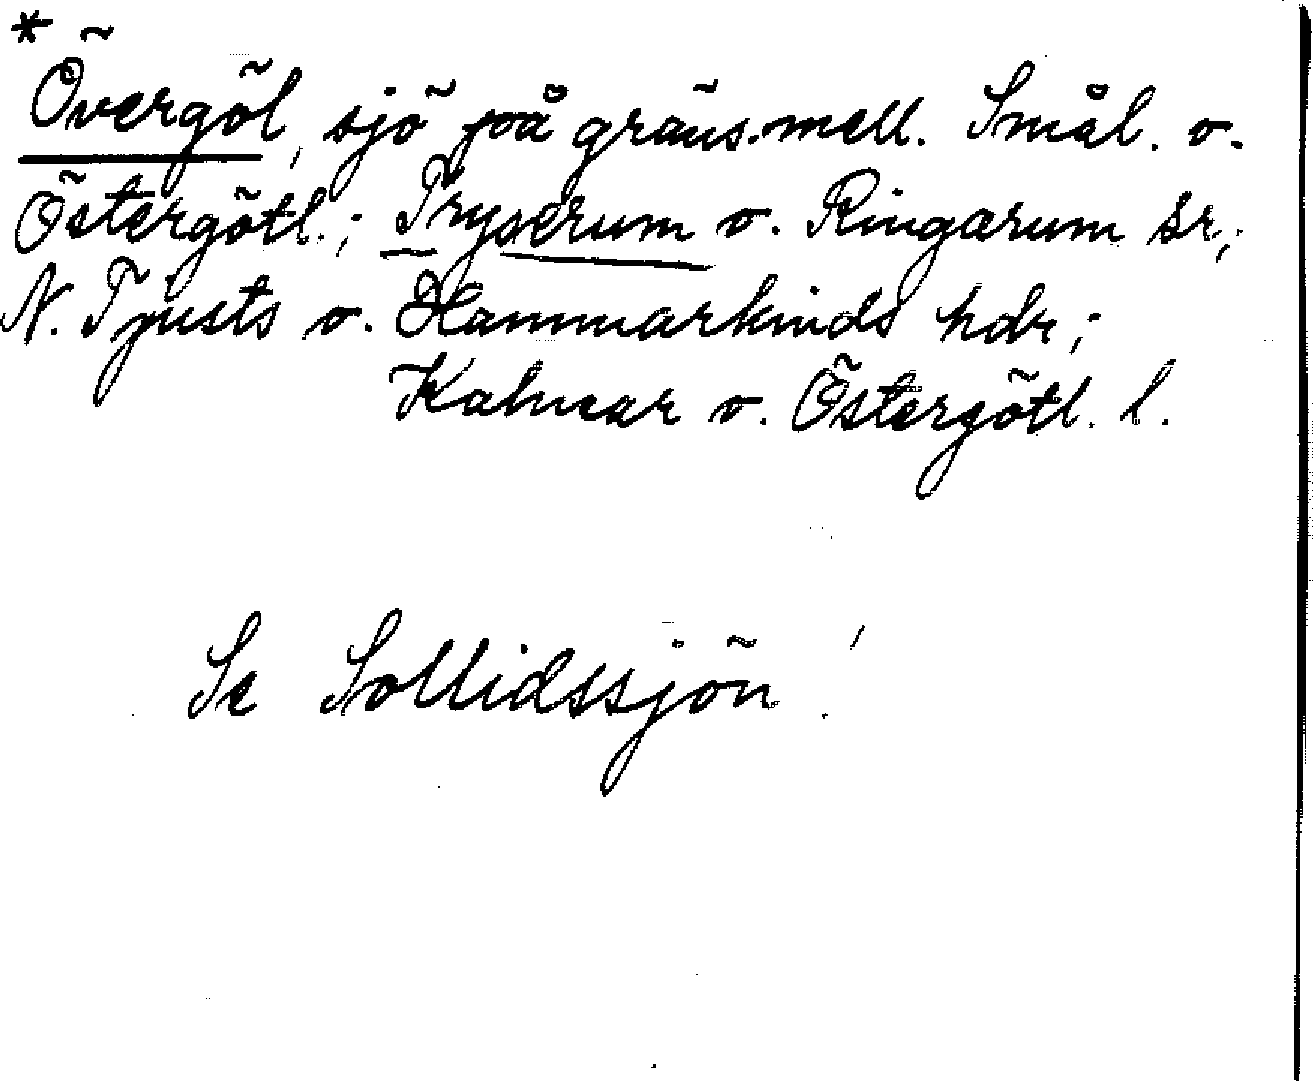 *
Övergöl, sjö på gräns. mell. Smål. o.
Östergötl.; Tryserum o. Ringarum sr;
N. Tjusts o. Hammarkinds hdr;
Kalmar o. Östergötl. l.
Se Sollidssjön!